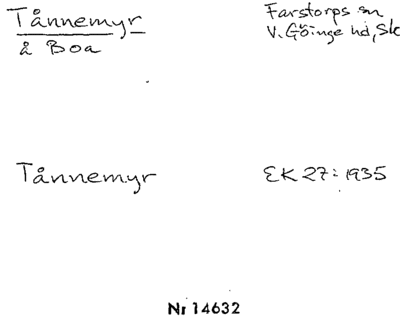 Tånnemyr
å Boa
Farstorps sn
V. Göinge hd, Sk
Tånnemyr
EK 27: 1935
Nr 14632